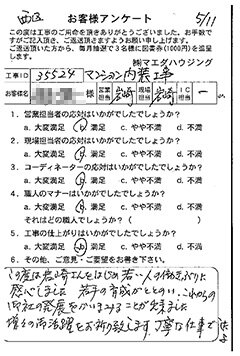 西区
お客様アンケート 5/11
この度は工事のご用命を頂きありがとうございました。お手数で
すがご記入頂き、ご返送頂きますようお願い申し上げます。
ご返送頂いた方から、毎月抽選で3名様に図書券(1000円)を進呈
します。
㈱マエダハウジング
工事ID 35524 マンション内装工事
お客様名 様 営業担当 岩崎 現場担当 岩崎 IC担当 ー
1. 営業担当者の応対はいかがでしたでしょうか?
a. 大変満足 b. 満足 c. やや不満 d. 不満
2. 現場担当者の応対はいかがでしたでしょうか?
a. 大変満足 b. 満足 c. やや不満 d. 不満
3. コーディネーターの応対はいかがでしたでしょうか?
a. 大変満足 b. 満足 c. やや不満 d. 不満
4. 職人のマナーはいかがでしたでしょうか?
a. 大変満足 b. 満足 c. やや不満 d. 不満
それはどの職人でしょうか?( )
5. 工事の仕上がりはいかがでしたでしょうか?
a. 大変満足 b. 満足 c. やや不満 d. 不満
6. その他、ご意見・ご要望をお書き下さい。
今度は岩崎さんをはじめ若い人の働きぶりに
感心しました 若手の育成がととのい、これからの
御社の発展をかいまみることが出来ました
増々の御活躍をお祈り致します 丁寧な仕事で